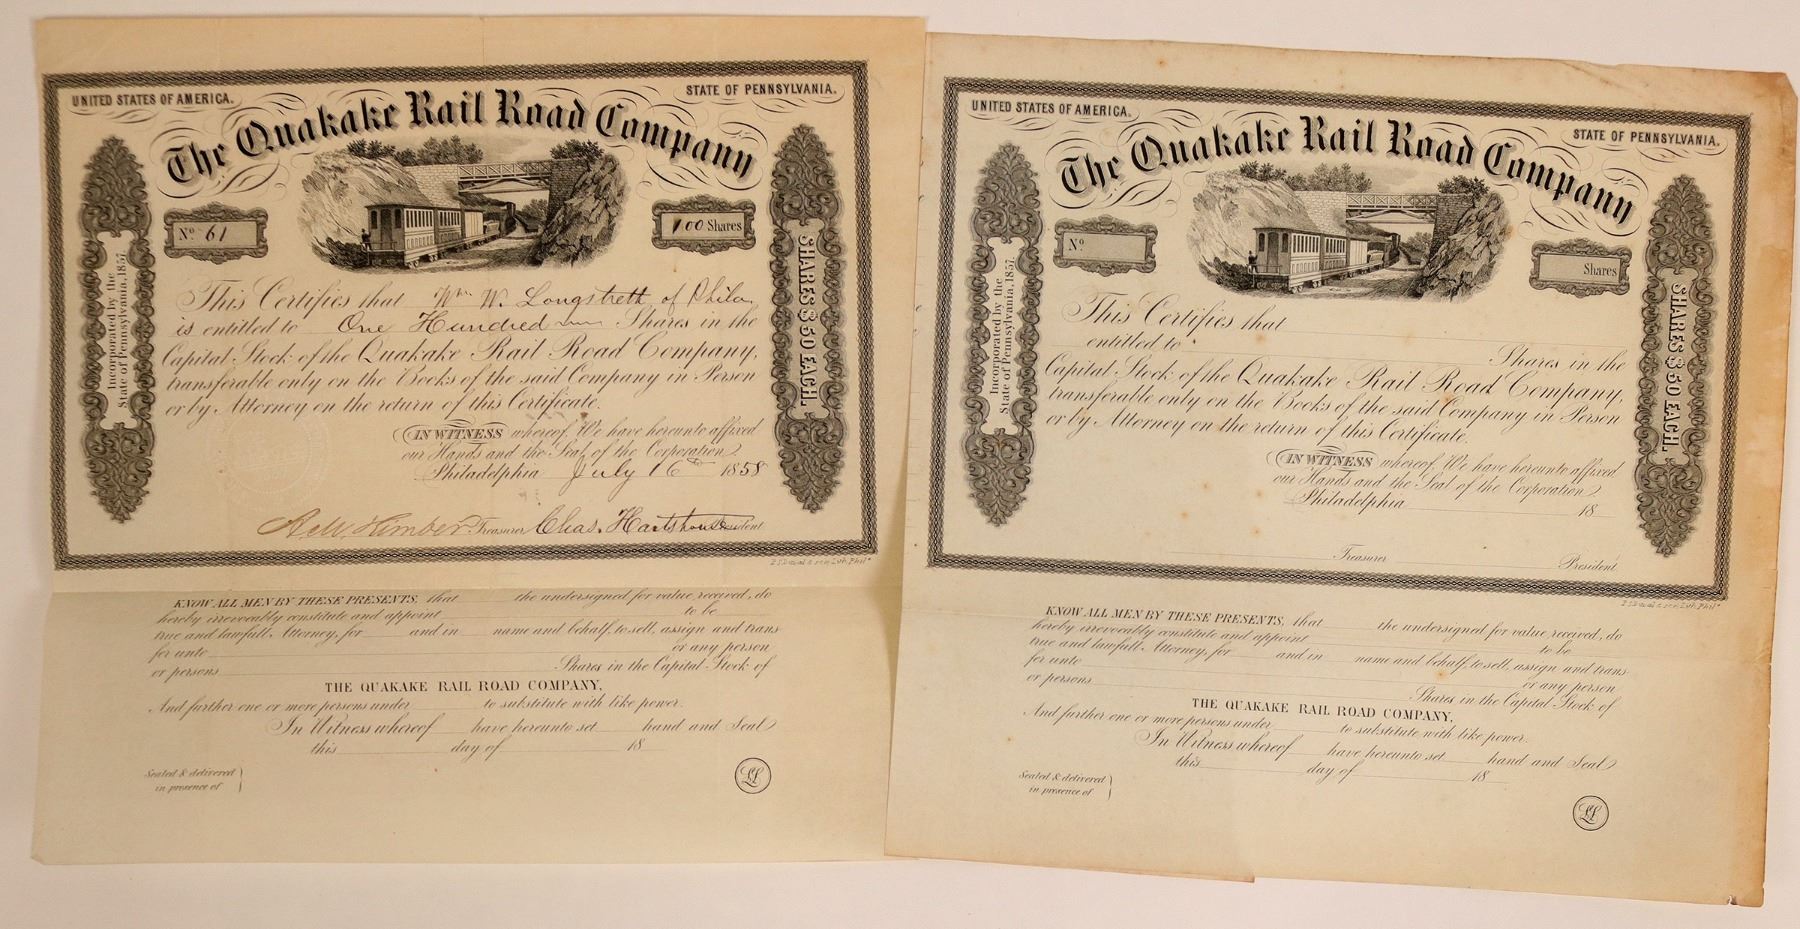 UNITED STATES OF AMERICA.
STATE OF PENNSYLVANIA.
The Quakake Rail Road Company
No. 61
100 Shares
Incorporated by the
State of Pennsylvania, 1857.
SHARES $50 EACH.
This Certifies that Wm. W. Longstreth of Phila.
is entitled to One Hundred Shares in the
Capital Stock of the Quakake Rail Road Company,
transferable only on the Books of the said Company in Person
or by Attorney on the return of this Certificate.
IN WITNESS whereof, We have hereunto affixed
our Hands and the Seal of the Corporation
Philadelphia July 16th 1858
Treasurer Chas. Hartshorne President
KNOW ALL MEN BY THESE PRESENTS, that the undersigned for value received, do
hereby irrevocably constitute and appoint to be
true and lawfull Attorney, for and in name and behalf, to sell, assign and trans-
fer unto or any person
or persons Shares in the Capital Stock of
THE QUAKAKE RAIL ROAD COMPANY,
And further one or more persons under to substitute with like power.
In Witness whereof have hereunto set hand and Seal
this day of 18
Sealed & delivered
in presence of
LS
UNITED STATES OF AMERICA.
STATE OF PENNSYLVANIA.
The Quakake Rail Road Company
No.
Shares
Incorporated by the
State of Pennsylvania, 1857.
SHARES $50 EACH.
This Certifies that
entitled to Shares in the
Capital Stock of the Quakake Rail Road Company,
transferable only on the Books of the said Company in Person
or by Attorney on the return of this Certificate.
IN WITNESS whereof, We have hereunto affixed
our Hands and the Seal of the Corporation
Philadelphia 18
Treasurer President
KNOW ALL MEN BY THESE PRESENTS, that the undersigned for value received, do
hereby irrevocably constitute and appoint to be
true and lawfull Attorney, for and in name and behalf, to sell, assign and trans-
fer unto or any person
or persons Shares in the Capital Stock of
THE QUAKAKE RAIL ROAD COMPANY,
And further one or more persons under to substitute with like power.
In Witness whereof have hereunto set hand and Seal
this day of 18
Sealed & delivered
in presence of
LS